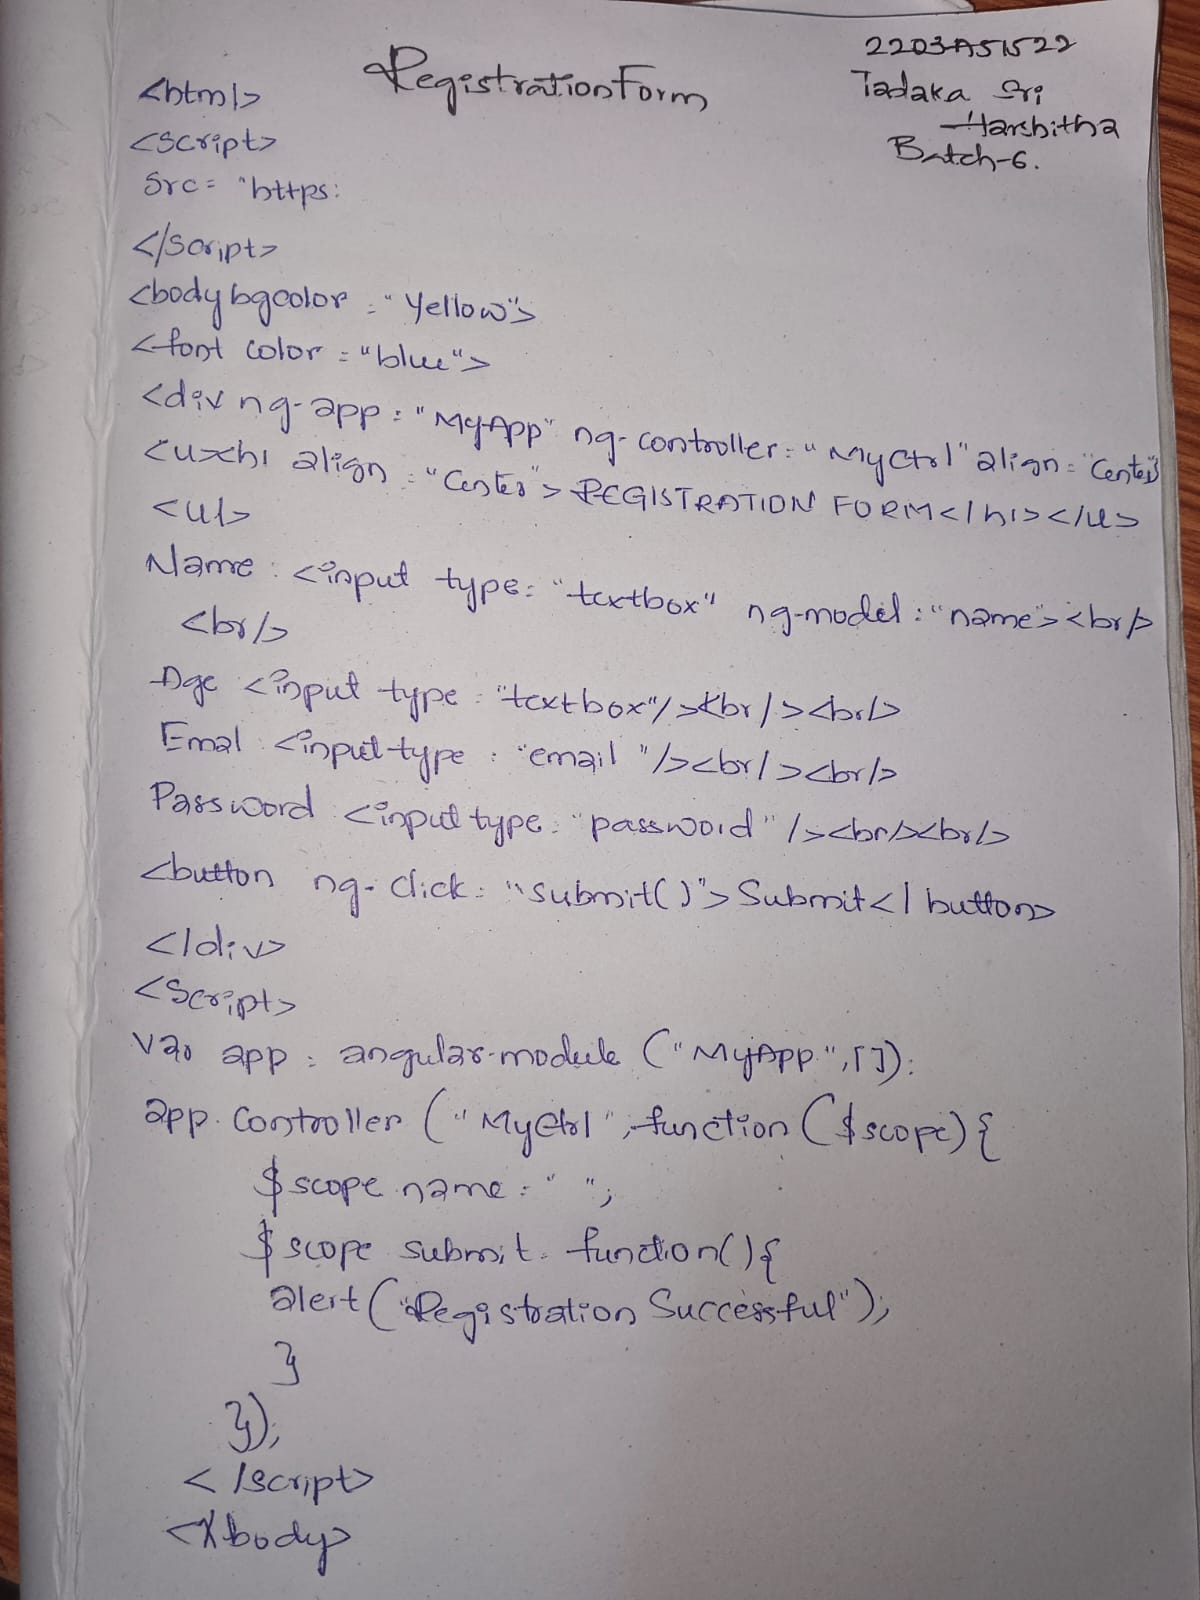 Registration Form
2203A51522
Tadaka Sri
Harshitha
Batch-6.
<html>
<script>
Src= "https:
</script>
<body bgcolor = "Yellow">
<font color = "blue">
<div ng-app = "MyApp" ng-controller = "MyCtrl" align = "Center">
<u><h1 align = "Center"> REGISTRATION FORM</h1></u>
<ul>
Name : <input type = "textbox" ng-model = "name"><br/>
<br/>
Age <input type = "textbox"/><br/><br/>
Emal : <input type = "email "/><br/><br/>
Password <input type = "password" /><br/><br/>
<button ng-click = "submit()">Submit</button>
</div>
<Script>
var app = angular-module ("MyApp",[]);
app.Controller ("MyCtrl", function ($scope){
$scope name = " ";
$scope submit = function(){
alert("Registration Successful");
}
});
</script>
</body>